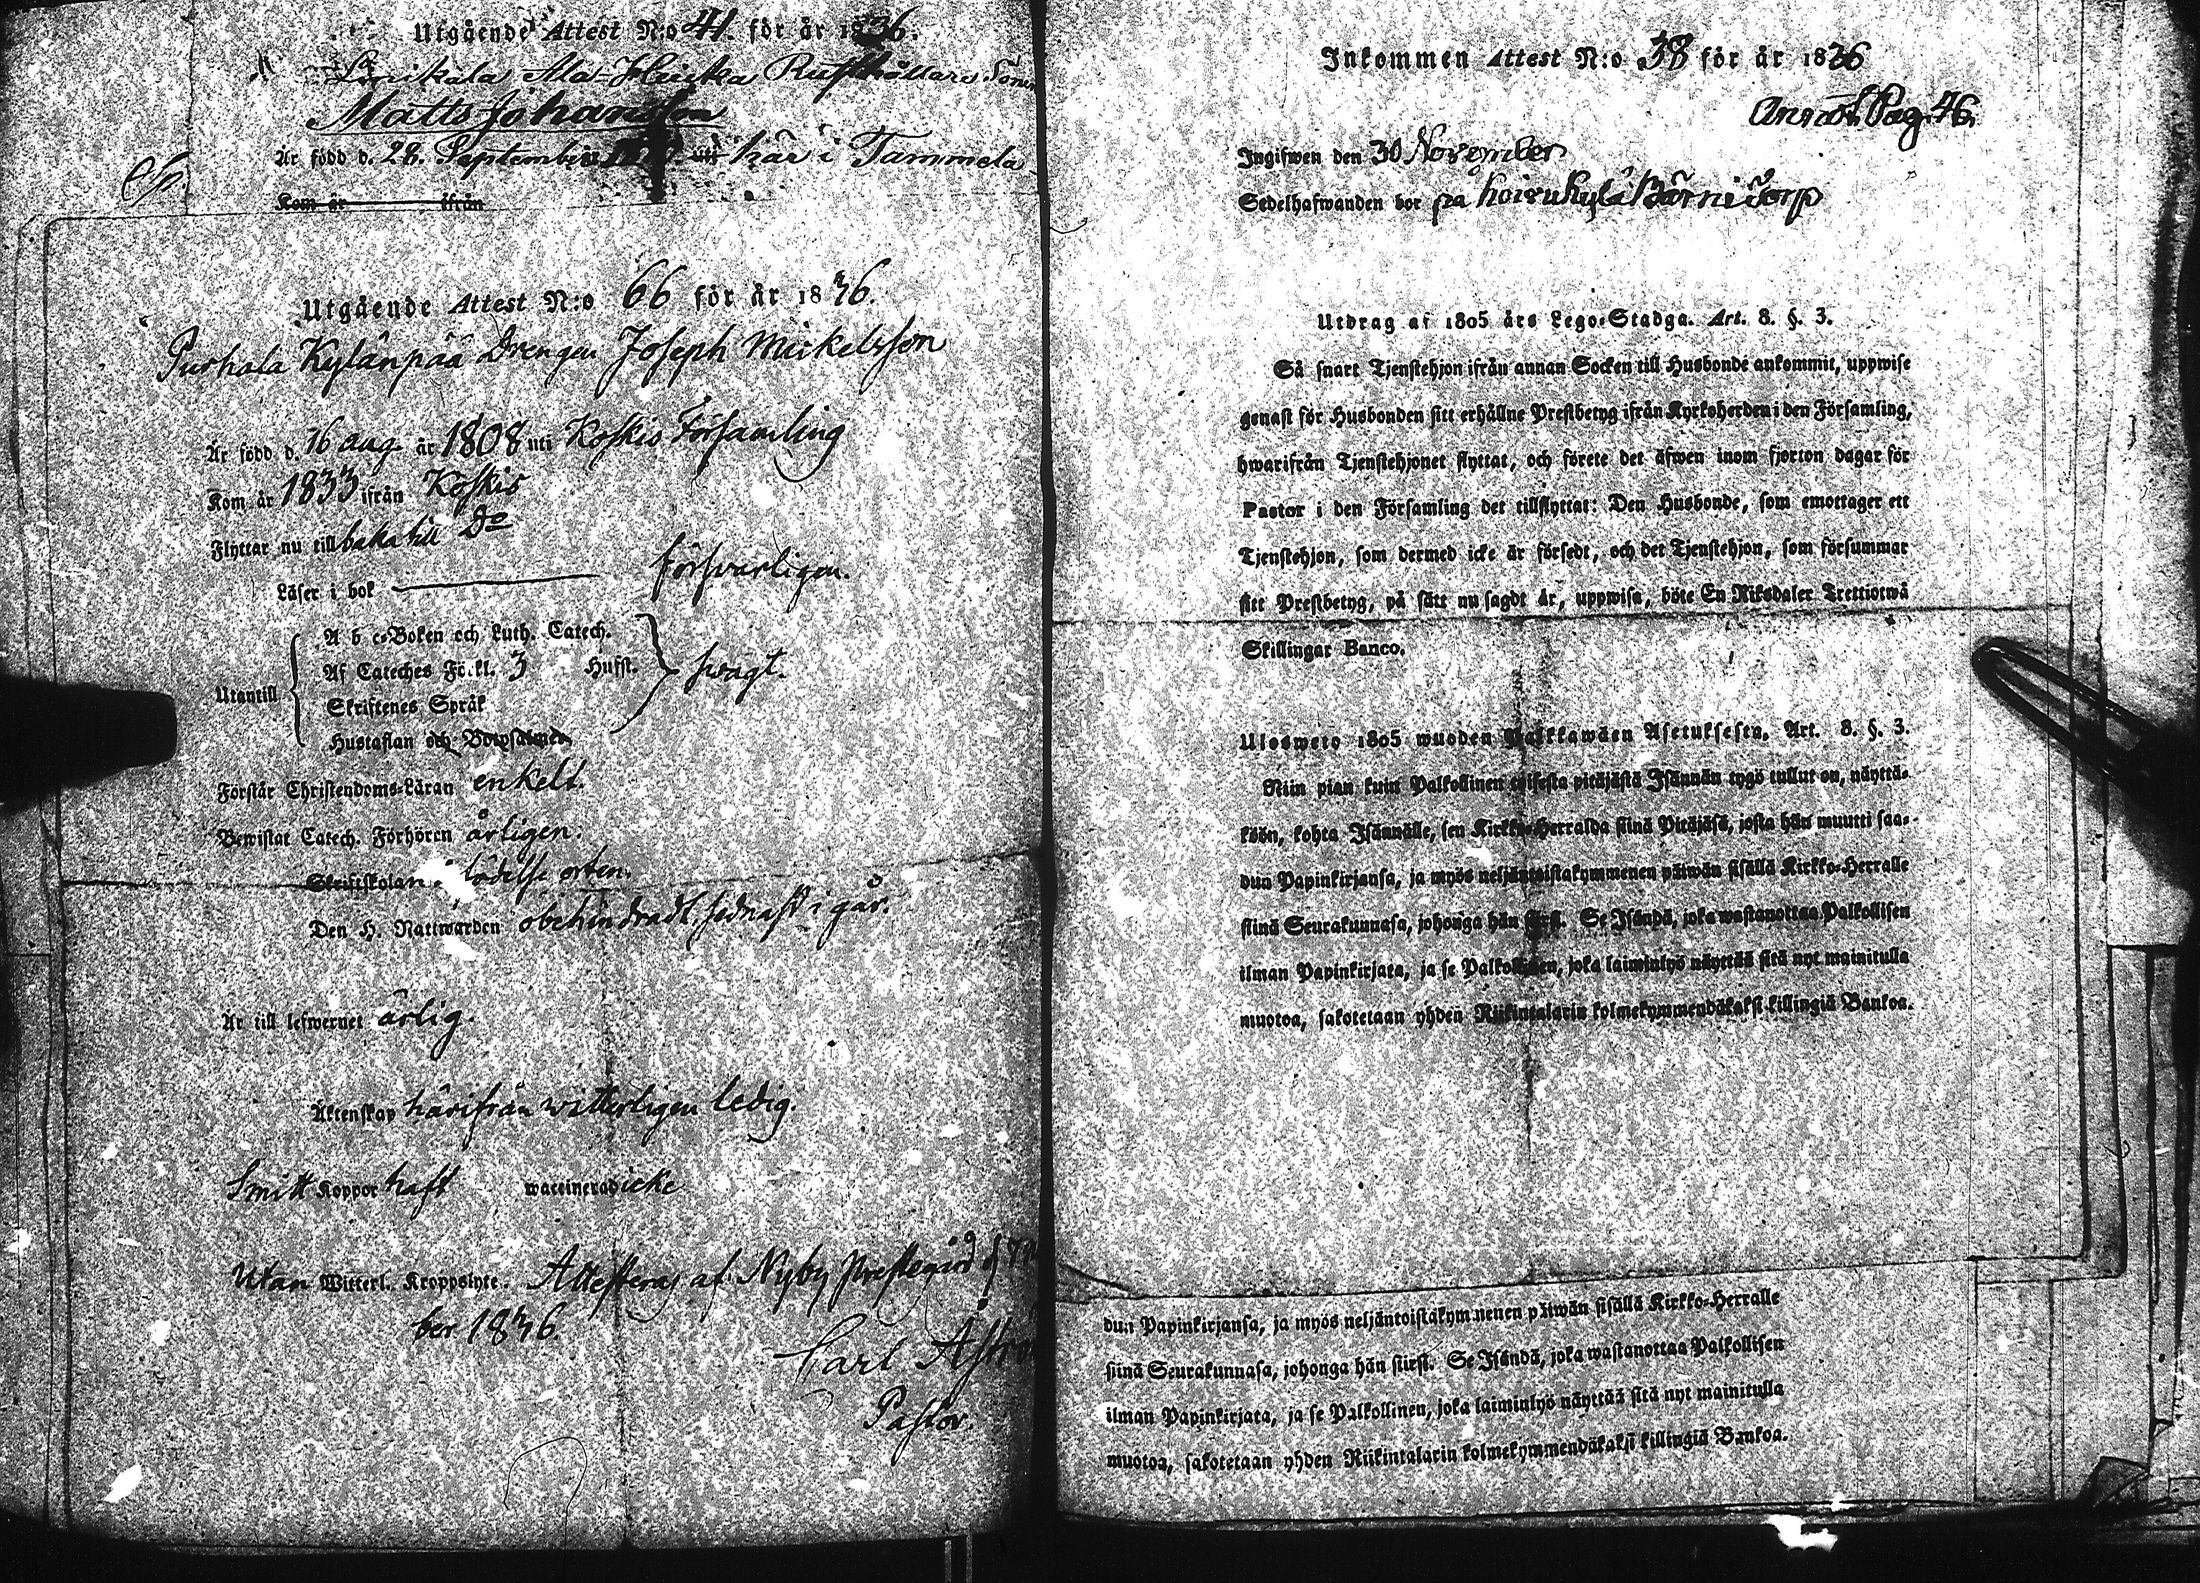 Utgående Attest N:o 41. för år 1836.
Ala Rusthållare Sonen
Matts Johansson
Är född d. 28. September här i Tammela
Kom år ifrån
Utgående Attest N:o 66 för år 1836.
Purhala Kylänpää Drengen Joseph Mickelsson
Är född d. 16 aug. år 1808 uti Koskis Församling
Kom år 1833 ifrån Koskis
Flyttar nu till baka till Do
Läser i bok försvarligen.
Utantill
A b c-Boken och Luth. Catech.
Af Cateches Förkl. 3 Hufst. svagt.
Skriftenes Språk
Hustaflan och Botpsalmen
Förstår Christendoms-Läran enkelt.
Bewistat Catech. Förhören årligen.
Skriftskolan i födelse orten.
Den H. Nattwarden obehindradt sednast i går.
Är till lefwernet ärlig.
Äktenskap härifrån witterligen ledig.
Smitt Koppor haft waccinerad icke
Utan Witterl. Kroppslyte. Attesteras af Nyby Prestegård d
ber 1836.
Carl
Pastor.
Inkommen Attest N:o 38 för år 1836
Annot. Pag. 46.
Ingifwen den 30 November
Sedelhafwanden bor på Torp
Utdrag af 1805 års Lego-Stadga. Art. 8. §. 3.
Så snart Tjenstehjon ifrån annan Socken till Husbonde ankommit, uppwise
genast för Husbonden sitt erhållne Prestbetyg ifrån Kyrkoherden i den Församling,
hwarifrån Tjenstehjonet flyttat, och förete det äfwen inom fjorton dagar för
Pastor i den Församling det tillflyttat: Den Husbonde, som emottager ett
Tjenstehjon, som dermed icke är försedt, och det Tjenstehjon, som försummar
sitt Prestbetyg, på sätt nu sagdt är, uppwisa, böte En Riksdaler Trettiotwå
Skillingar Banco.
Ulosweto 1805 wuoden Palkkawäen Asetuksesta. Art. 8. §. 3.
Niin pian kuin Palkollinen toisesta pitäjästä Isännän tygö tullut on, näyttä-
köön, kohta Isännälle, sen Kirkko-Herralda siinä Pitäjäsä, josta hän muutti saa-
dun Papinkirjansa, ja myös neljäntoistakymmenen päiwän sisällä Kirkko-Herralle
siinä Seurakunnasa, johonga hän siirst. Se Isändä, joka wastanottaa Palkollisen
ilman Papinkirjata, ja se Palkollinen, joka laiminlyö näyttää sitä nyt mainitulla
muotoa, sakotetaan yhden Riikintalarin kolmekymmendäkaksi killingiä Bankoa.
dun Papinkirjansa, ja myös neljäntoistakymmenen päiwän sisällä Kirkko-Herralle
siinä Seurakunnasa, johonga hän siirst. Se Isändä, joka wastanottaa Palkollisen
ilman Papinkirjata, ja se Palkollinen, joka laiminlyö näyttää sitä nyt mainitulla
muotoa, sakotetaan yhden Riikintalarin kolmekymmendäkaksi killingiä Bankoa.